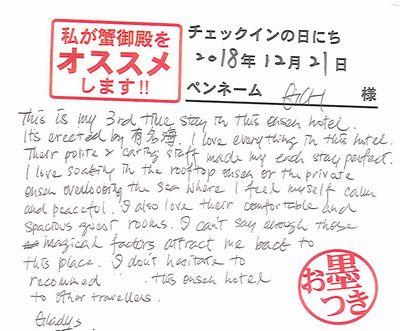 私が蟹御殿を
オススメ
します!!
チェックインの日にち
2018年12月21日
ペンネーム 様
This is my 3rd time stay in this onsen hotel.
Its erected by 有名海. I love everything in this hotel.
Their polite & caring staff made my each stay perfect.
I love soaking in the rooftop onsen or the private
onsen overlooking the sea where I feel myself calm
and peaceful. I also love their comfortable and
spacious guest rooms. I can't say enough those
magical factors attract me back to
this place. I don't hesitate to
recommend this onsen hotel
to other travellers.
Gladys
お墨つき